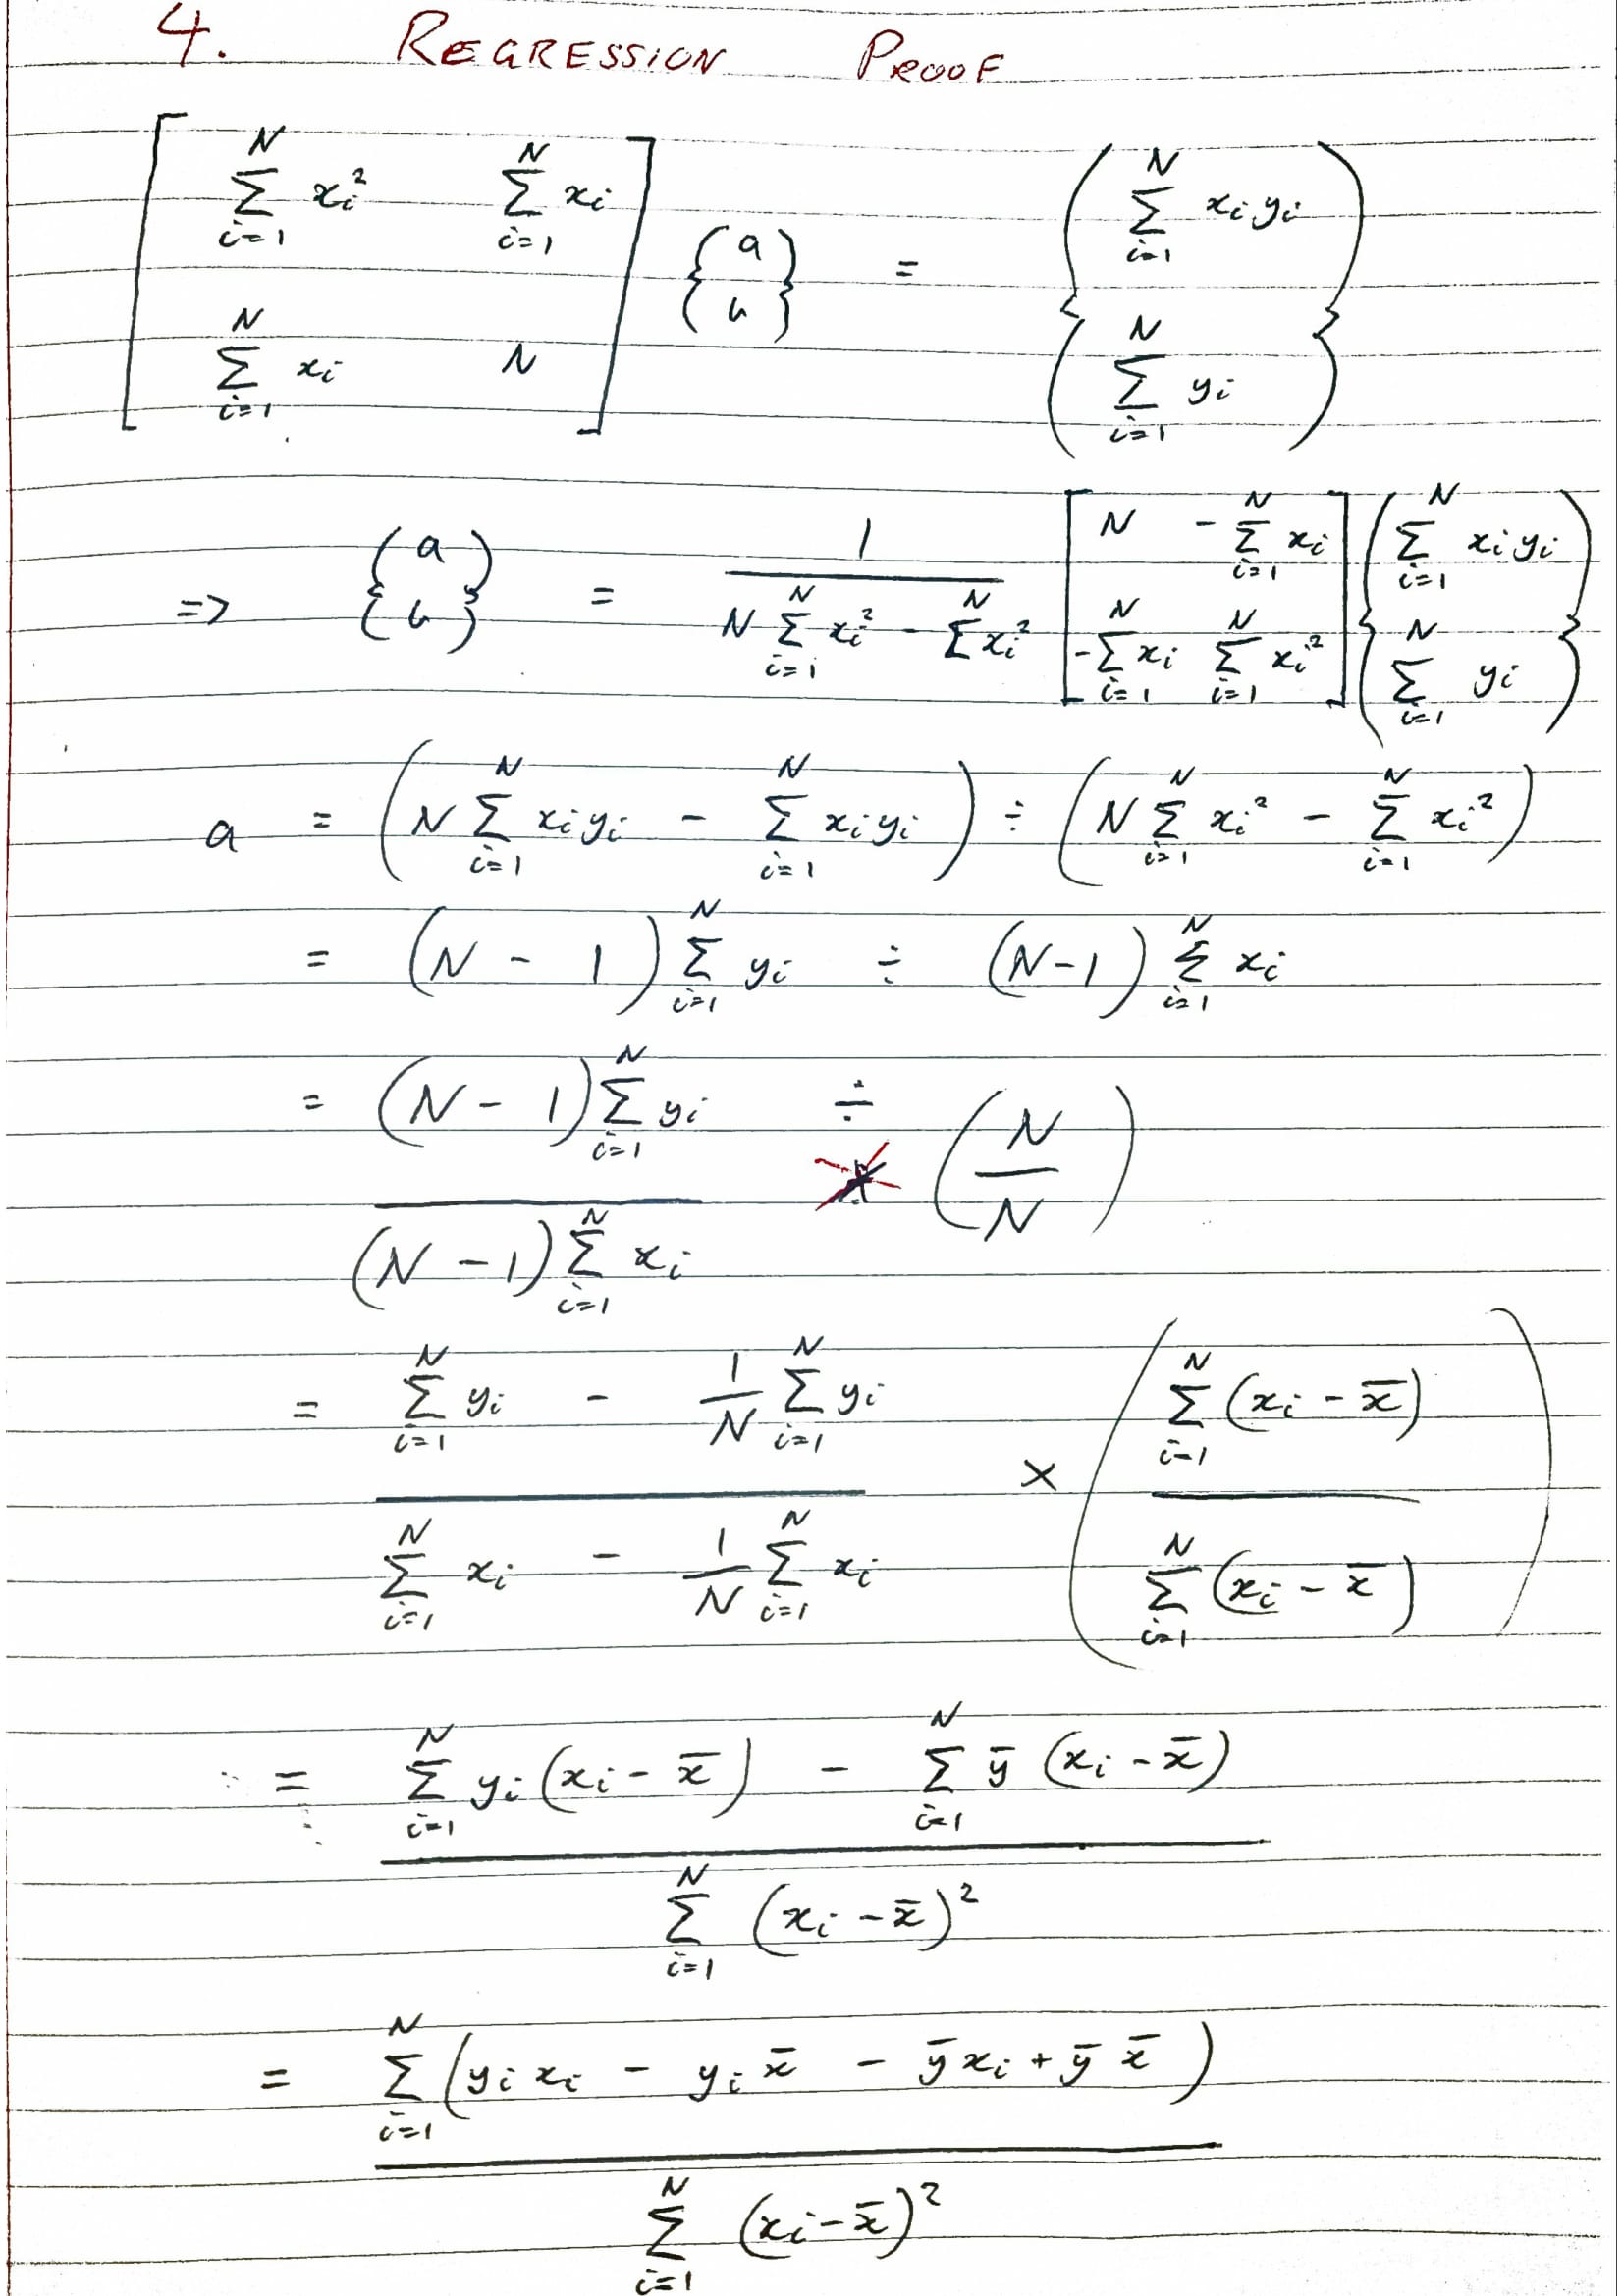 4. REGRESSION PROOF
[ \sum_{i=1}^{N} x_i^2   \sum_{i=1}^{N} x_i ; \sum_{i=1}^{N} x_i   N ] { a ; b } = { \sum_{i=1}^{N} x_i y_i ; \sum_{i=1}^{N} y_i }
=> { a ; b } = \frac{1}{N \sum_{i=1}^{N} x_i^2 - \sum^{N} x_i^2} [ N   -\sum_{i=1}^{N} x_i ; -\sum_{i=1}^{N} x_i   \sum_{i=1}^{N} x_i^2 ] { \sum_{i=1}^{N} x_i y_i ; \sum_{i=1}^{N} y_i }
a = ( N \sum_{i=1}^{N} x_i y_i - \sum_{i=1}^{N} x_i y_i ) ÷ ( N \sum_{i=1}^{N} x_i^2 - \sum_{i=1}^{N} x_i^2 )
= (N - 1) \sum_{i=1}^{N} y_i ÷ (N-1) \sum_{i=1}^{N} x_i
= \frac{(N - 1) \sum_{i=1}^{N} y_i}{(N - 1) \sum_{i=1}^{N} x_i} ÷ ( \frac{N}{N} )
= \frac{\sum_{i=1}^{N} y_i - \frac{1}{N} \sum_{i=1}^{N} y_i}{\sum_{i=1}^{N} x_i - \frac{1}{N} \sum_{i=1}^{N} x_i} × ( \frac{\sum_{i=1}^{N} (x_i - \bar{x})}{\sum_{i=1}^{N} (x_i - \bar{x})} )
= \frac{\sum_{i=1}^{N} y_i (x_i - \bar{x}) - \sum_{i=1}^{N} \bar{y} (x_i - \bar{x})}{\sum_{i=1}^{N} (x_i - \bar{x})^2}
= \frac{\sum_{i=1}^{N} ( y_i x_i - y_i \bar{x} - \bar{y} x_i + \bar{y} \bar{x} )}{\sum_{i=1}^{N} (x_i - \bar{x})^2}